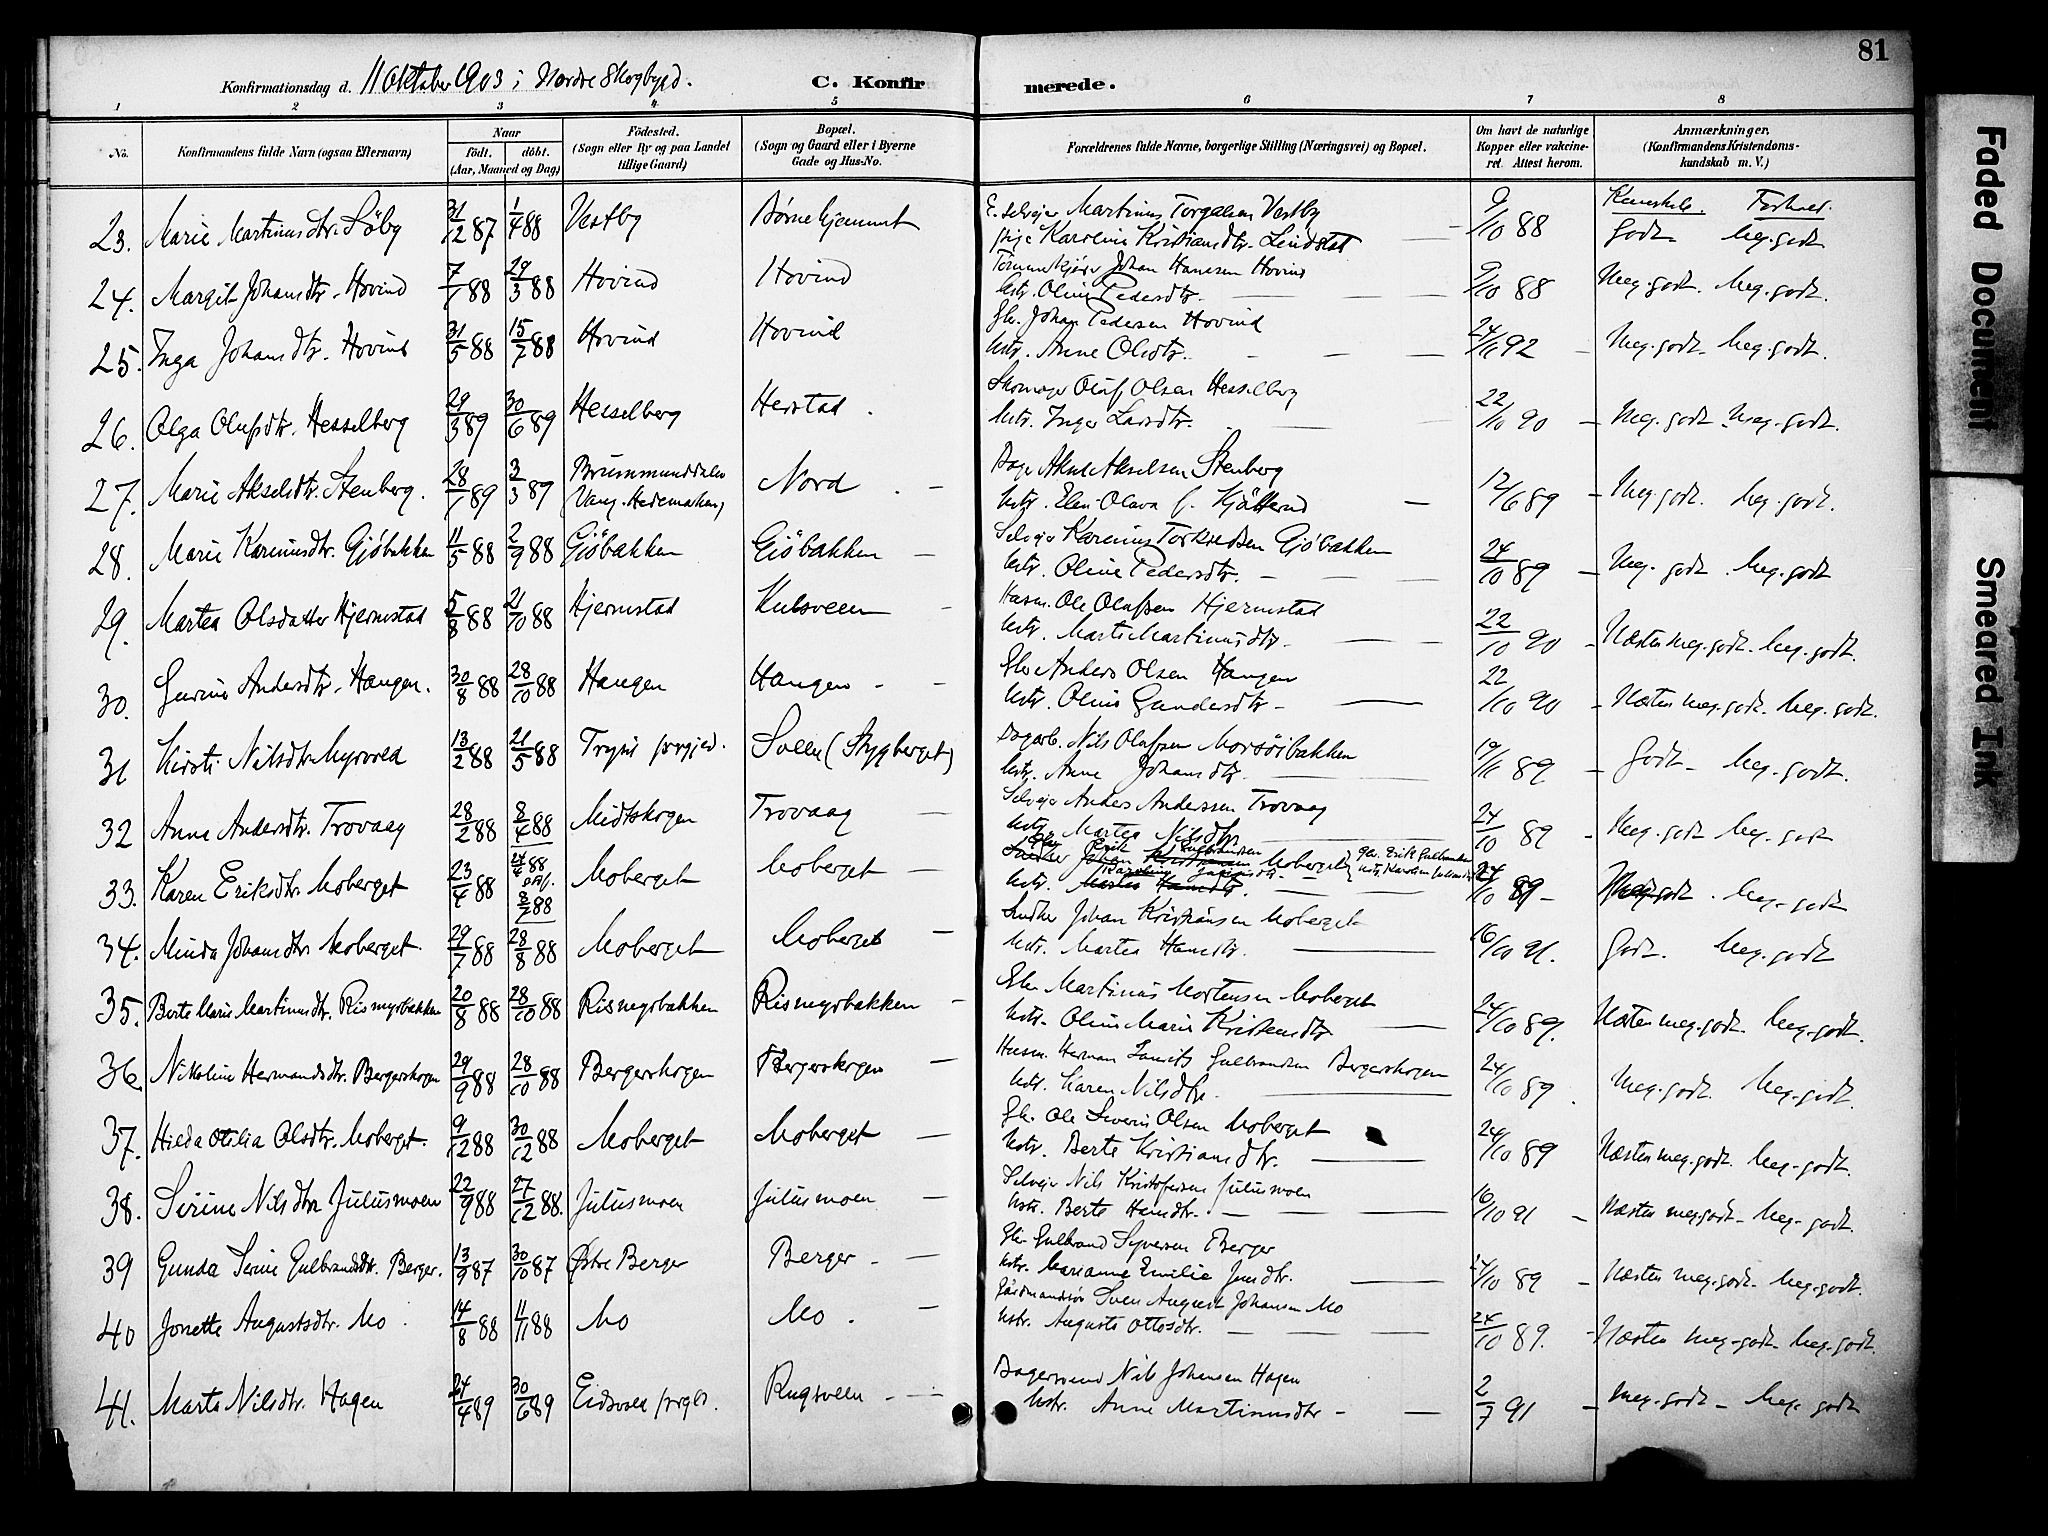 81
Konfirmationsdag d. 11 Oktober 1903 i Nordre Skogbygd. C. Konfirmerede.
1 2 3 4 5 6 7 8
No. Konfirmandens fulde Navn (ogsaa Efternavn) Naar födt. döbt. (Aar, Maaned og Dag) Födested. (Sogn eller By og paa Landet tillige Gaard) Bopæl. (Sogn og Gaard eller i Byerne Gade og Hus-No. Forældrenes fulde Navne, borgerlige Stilling (Næringsvei) og Bopæl. Om havt de naturlige Kopper eller vakcineret. Attest herom. Anmærkninger, (Konfirmandens Kristendomskundskab m. V.)
Kundskab. Forhold.
23. Marie Martinusdtr. Söby 31/12 87 1/4 88 Vestby Börnehjemmet
Martinus Torgalsen Vestby
pige Karoline Kristiansdtr. Lindstad 9/10 88 Godt. Meg. godt
24. Margit Johansdtr. Hovind 7/1 88 29/3 88 Hovind Hovind
Johan Hansen Hovind
Hstr. Oline Pedersdtr. 9/10 88 Meg. godt. Meg. godt.
25. Inga Johansdtr. Hovind 31/5 88 15/7 88 Hovind Hovind
Johan Pedersen Hovind
Hstr. Anne Olsdtr. 24/11 92 Meg. godt. Meg. godt.
26. Olga Olufsdtr. Hesselberg 29/3 89 30/6 89 Hesselberg Herstad.
Skomager Oluf Olsen Hesselberg
Hstr. Inger Larsdtr. 22/10 90 Meg. godt. Meg. godt.
27. Marie Akselsdtr. Stenberg. 28/1 89 3/3 89 Brummunddalen Vang. Hedemarken Nord
Aksel Akselsen Stenberg
Hstr. Elen Olava f. 12/6 89 Meg. godt. Meg. godt.
28. Marie Kareniusdtr. Gjöbakken 11/5 88 2/9 88 Gjöbakken Gjöbakken
Selveier Karenius Torkildsen Gjöbakken
Hstr. Oline Pedersdtr. 24/10 89 Meg. godt. Meg. godt
29. Martea Olsdatter Hjermstad 5/8 88 21/10 88 Hjermstad Kulsveen
Husm. Ole Olafsen Hjermstad
Hstr. Marte Martinusdtr. 22/10 90 Næsten meg. godt. Meg. godt.
30. Gurine Andersdtr. Haugen. 30/8 88 28/10 88 Haugen Haugen
Anders Olsen Haugen
Hstr. Oline Gundersdtr. 22/10 90 Næsten meg. godt. Meg. godt.
31 Kirsti Nilsdtr. Myrvold 13/2 88 21/5 88 Trysil prgjed. Sveen (Stygberget)
Dagarb. Nils Olafsen
Hstr. Anne Johansdtr. 19/11 89 Godt. Meg. godt.
32 Anna Andersdtr. Trovaag 28/2 88 8/4 88 Midtskogen Trovaag
Selveier Anders Anderssen Trovaag
Hstr. Martea Nilsdtr. 24/10 89 Meg. godt Meg. godt
33. Karen Eriksdtr. Moberget 23/4 88 8/7 88 Moberget Moberget
Erik Gulbrandsen Moberget
24/10 89 Meg. godt. Meg. godt
34. Minda Johansdtr. Moberget 29/7 88 28/8 88 Moberget Moberget
Snedker Johan Kristiansen Moberget
Hstr. Martea Hansdtr. 16/10 91. Godt. Meg. godt
35. Berte Marie Martinusdtr. Rismyrbakken 20/8 88 28/10 88 Rismyrbakken Rismyrbakken
Martinus Mortensen Moberget
Hstr. Oline Marie Kristensdtr. 24/10 89. Næsten meg. godt. Meg. godt.
36. Nikoline Hermansdtr. Bergerskogen 29/9 88 28/10 88 Bergerskogen Bergerskogen
Husm. Herman Laurits Gulbrandsen Bergerskogen
Hstr. Karen Nilsdtr. 24/10 89. Meg. godt. Meg. godt.
37. Hilda Otilia Olsdtr. Moberget. 9/12 88 30/12 88 Moberget Moberget
Ole Severin Olsen Moberget
Hstr. Berte Kristiansdtr. 24/10 89 Næsten meg. godt. Meg. godt.
38. Serine Nilsdtr. Julusmoen 22/9 88 27/12 88. Julusmoen Julusmoen
Selveier Nils Kristofersen Julusmoen
Hstr. Berte Hansdtr. 16/10 91 Næsten meg. godt. Meg. godt.
39 Gunda Serine Gulbrandsdtr. Berger. 13/9 87 30/10 87 Østre Berger Berger
Gulbrand Syversen Berger
Hstr. Marianne Emilie Jensdtr. 24/10 89 Næsten meg. godt. Meg. godt.
40 Jonette Augustsdtr. Mo 14/8 88 11/11 88 Mo Mo.
Sven August Johansen Mo
Hstr. Augusta Ottosdtr. 24/10 89. Næsten meg. godt. Meg. godt.
41. Marte Nilsdtr. Hagen 24/4 89 30/6 89 Eidsvold prgj. Rugsveen
Nils Johansen Hagen
Hstr. Anne Martinusdtr. 2/7 91 Meg. godt. Meg. godt
Faded Document
Smeared Ink